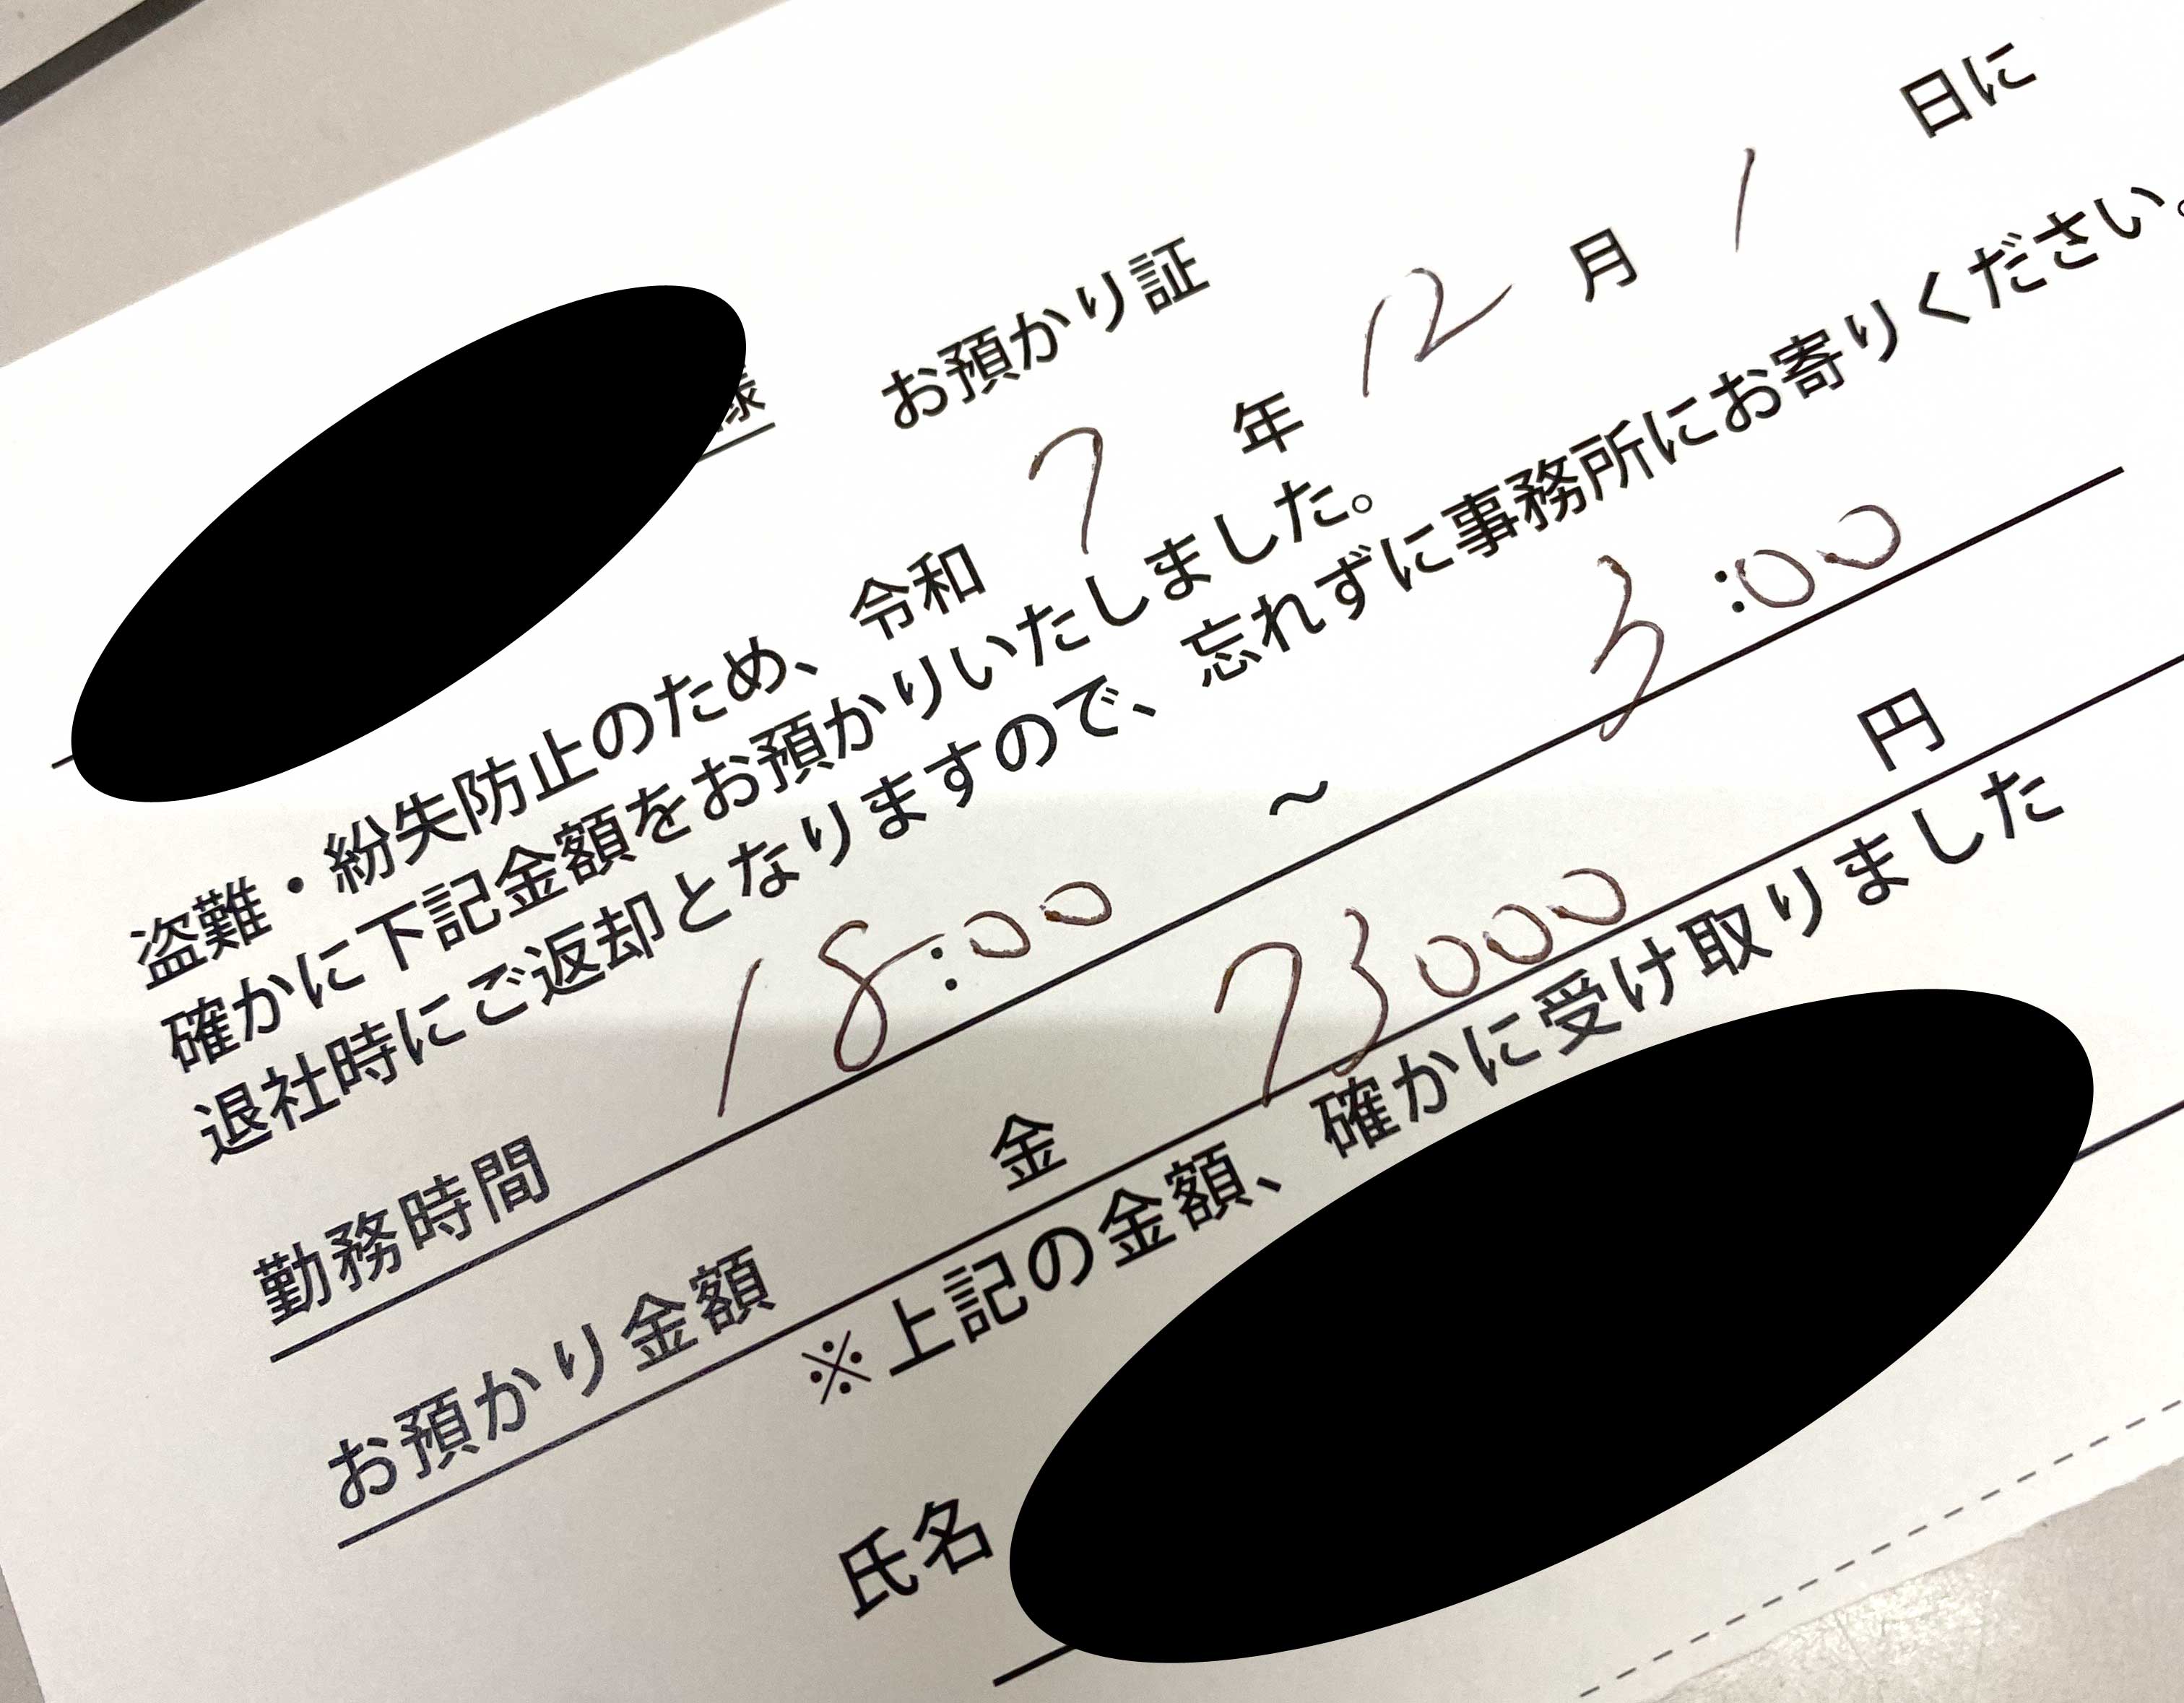 様 お預かり証
盗難・紛失防止のため、令和 7 年 12 月 1 日に
確かに下記金額をお預かりいたしました。
退社時にご返却となりますので、忘れずに事務所にお寄りください。
勤務時間 18:00 ～ 3:00
お預かり金額 金 73000 円
※上記の金額、確かに受け取りました
氏名